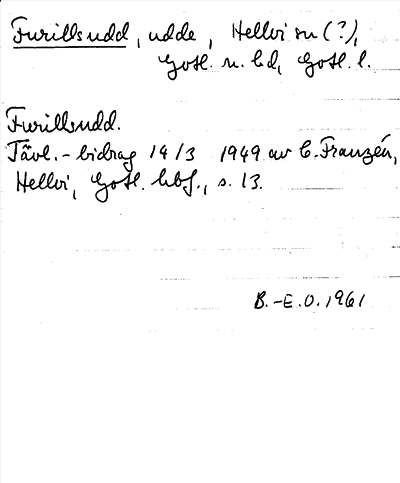 Furillsudd, udde, Hellvi sn (?),
Gotl. n. hd, Gotl. l.
Furillsudd.
Tävl.-bidrag 14/3 1949 av C. Franzén,
Hellvi, Gotl. hbf., s. 13.
B.-E.O. 1961